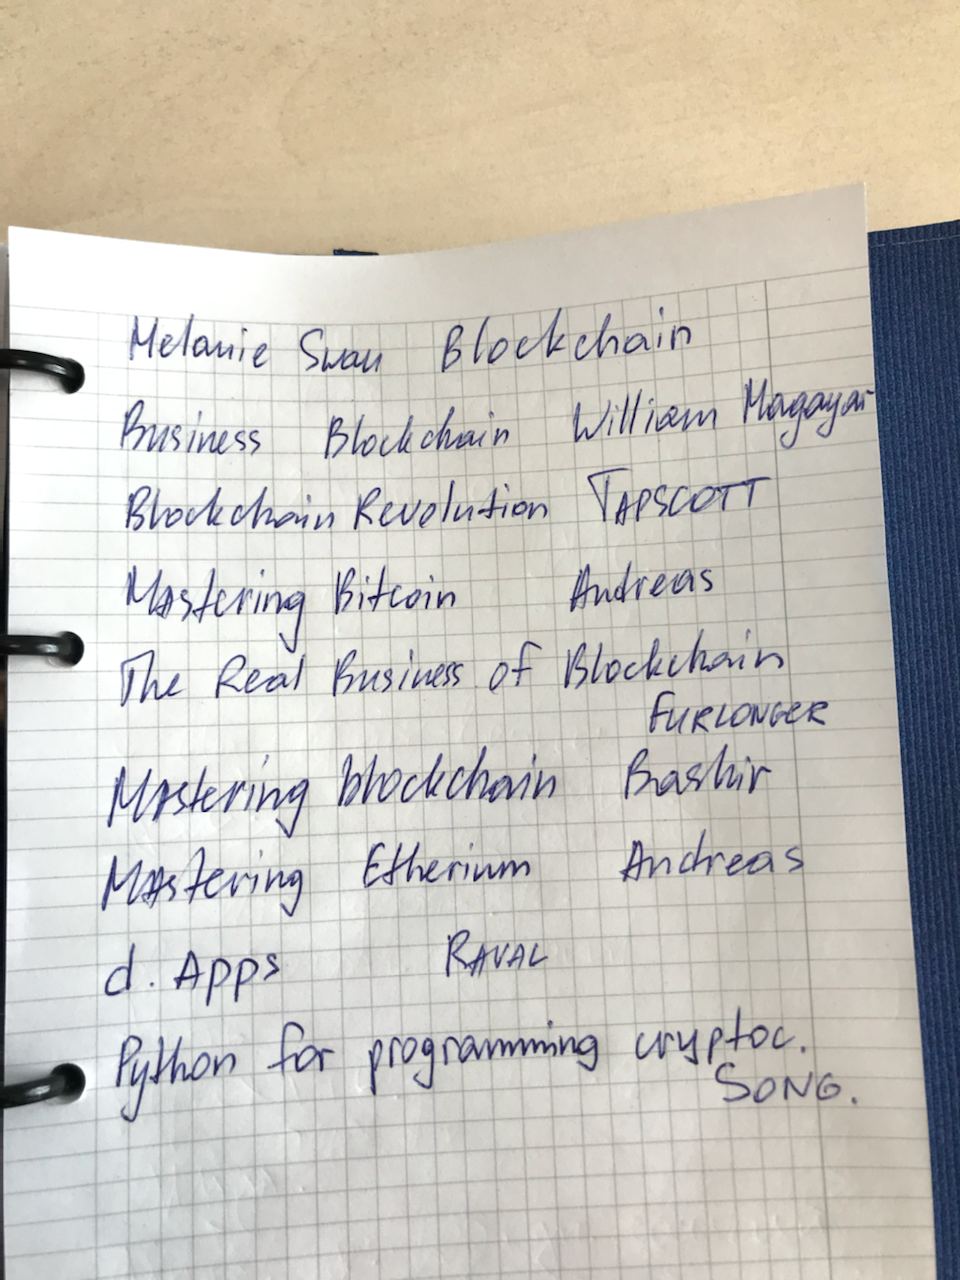 Melanie Swan Blockchain
Business Blockchain William Magayar
Blockchain Revolution TAPSCOTT
Mastering Bitcoin Andreas
The Real Business of Blockchain
FURLONGER
Mastering blockchain Bashir
Mastering Etherium Andreas
d. Apps RAVAL
Python for programming cryptoc.
SONG.